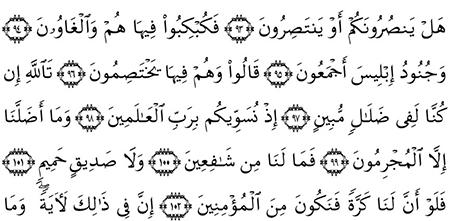 هَلْ يَنصُرُونَكُمْ أَوْ يَنتَصِرُونَ ﴿٩٣﴾ فَكُبْكِبُوا۟ فِيهَا هُمْ وَٱلْغَاوُۥنَ ﴿٩٤﴾
وَجُنُودُ إِبْلِيسَ أَجْمَعُونَ ﴿٩٥﴾ قَالُوا۟ وَهُمْ فِيهَا يَخْتَصِمُونَ ﴿٩٦﴾ تَٱللَّهِ إِن
كُنَّا لَفِى ضَلَٰلٍ مُّبِينٍ ﴿٩٧﴾ إِذْ نُسَوِّيكُم بِرَبِّ ٱلْعَٰلَمِينَ ﴿٩٨﴾ وَمَآ أَضَلَّنَآ
إِلَّا ٱلْمُجْرِمُونَ ﴿٩٩﴾ فَمَا لَنَا مِن شَٰفِعِينَ ﴿١٠٠﴾ وَلَا صَدِيقٍ حَمِيمٍ ﴿١٠١﴾
فَلَوْ أَنَّ لَنَا كَرَّةً فَنَكُونَ مِنَ ٱلْمُؤْمِنِينَ ﴿١٠٢﴾ إِنَّ فِى ذَٰلِكَ لَءَايَةً ۖ وَمَا